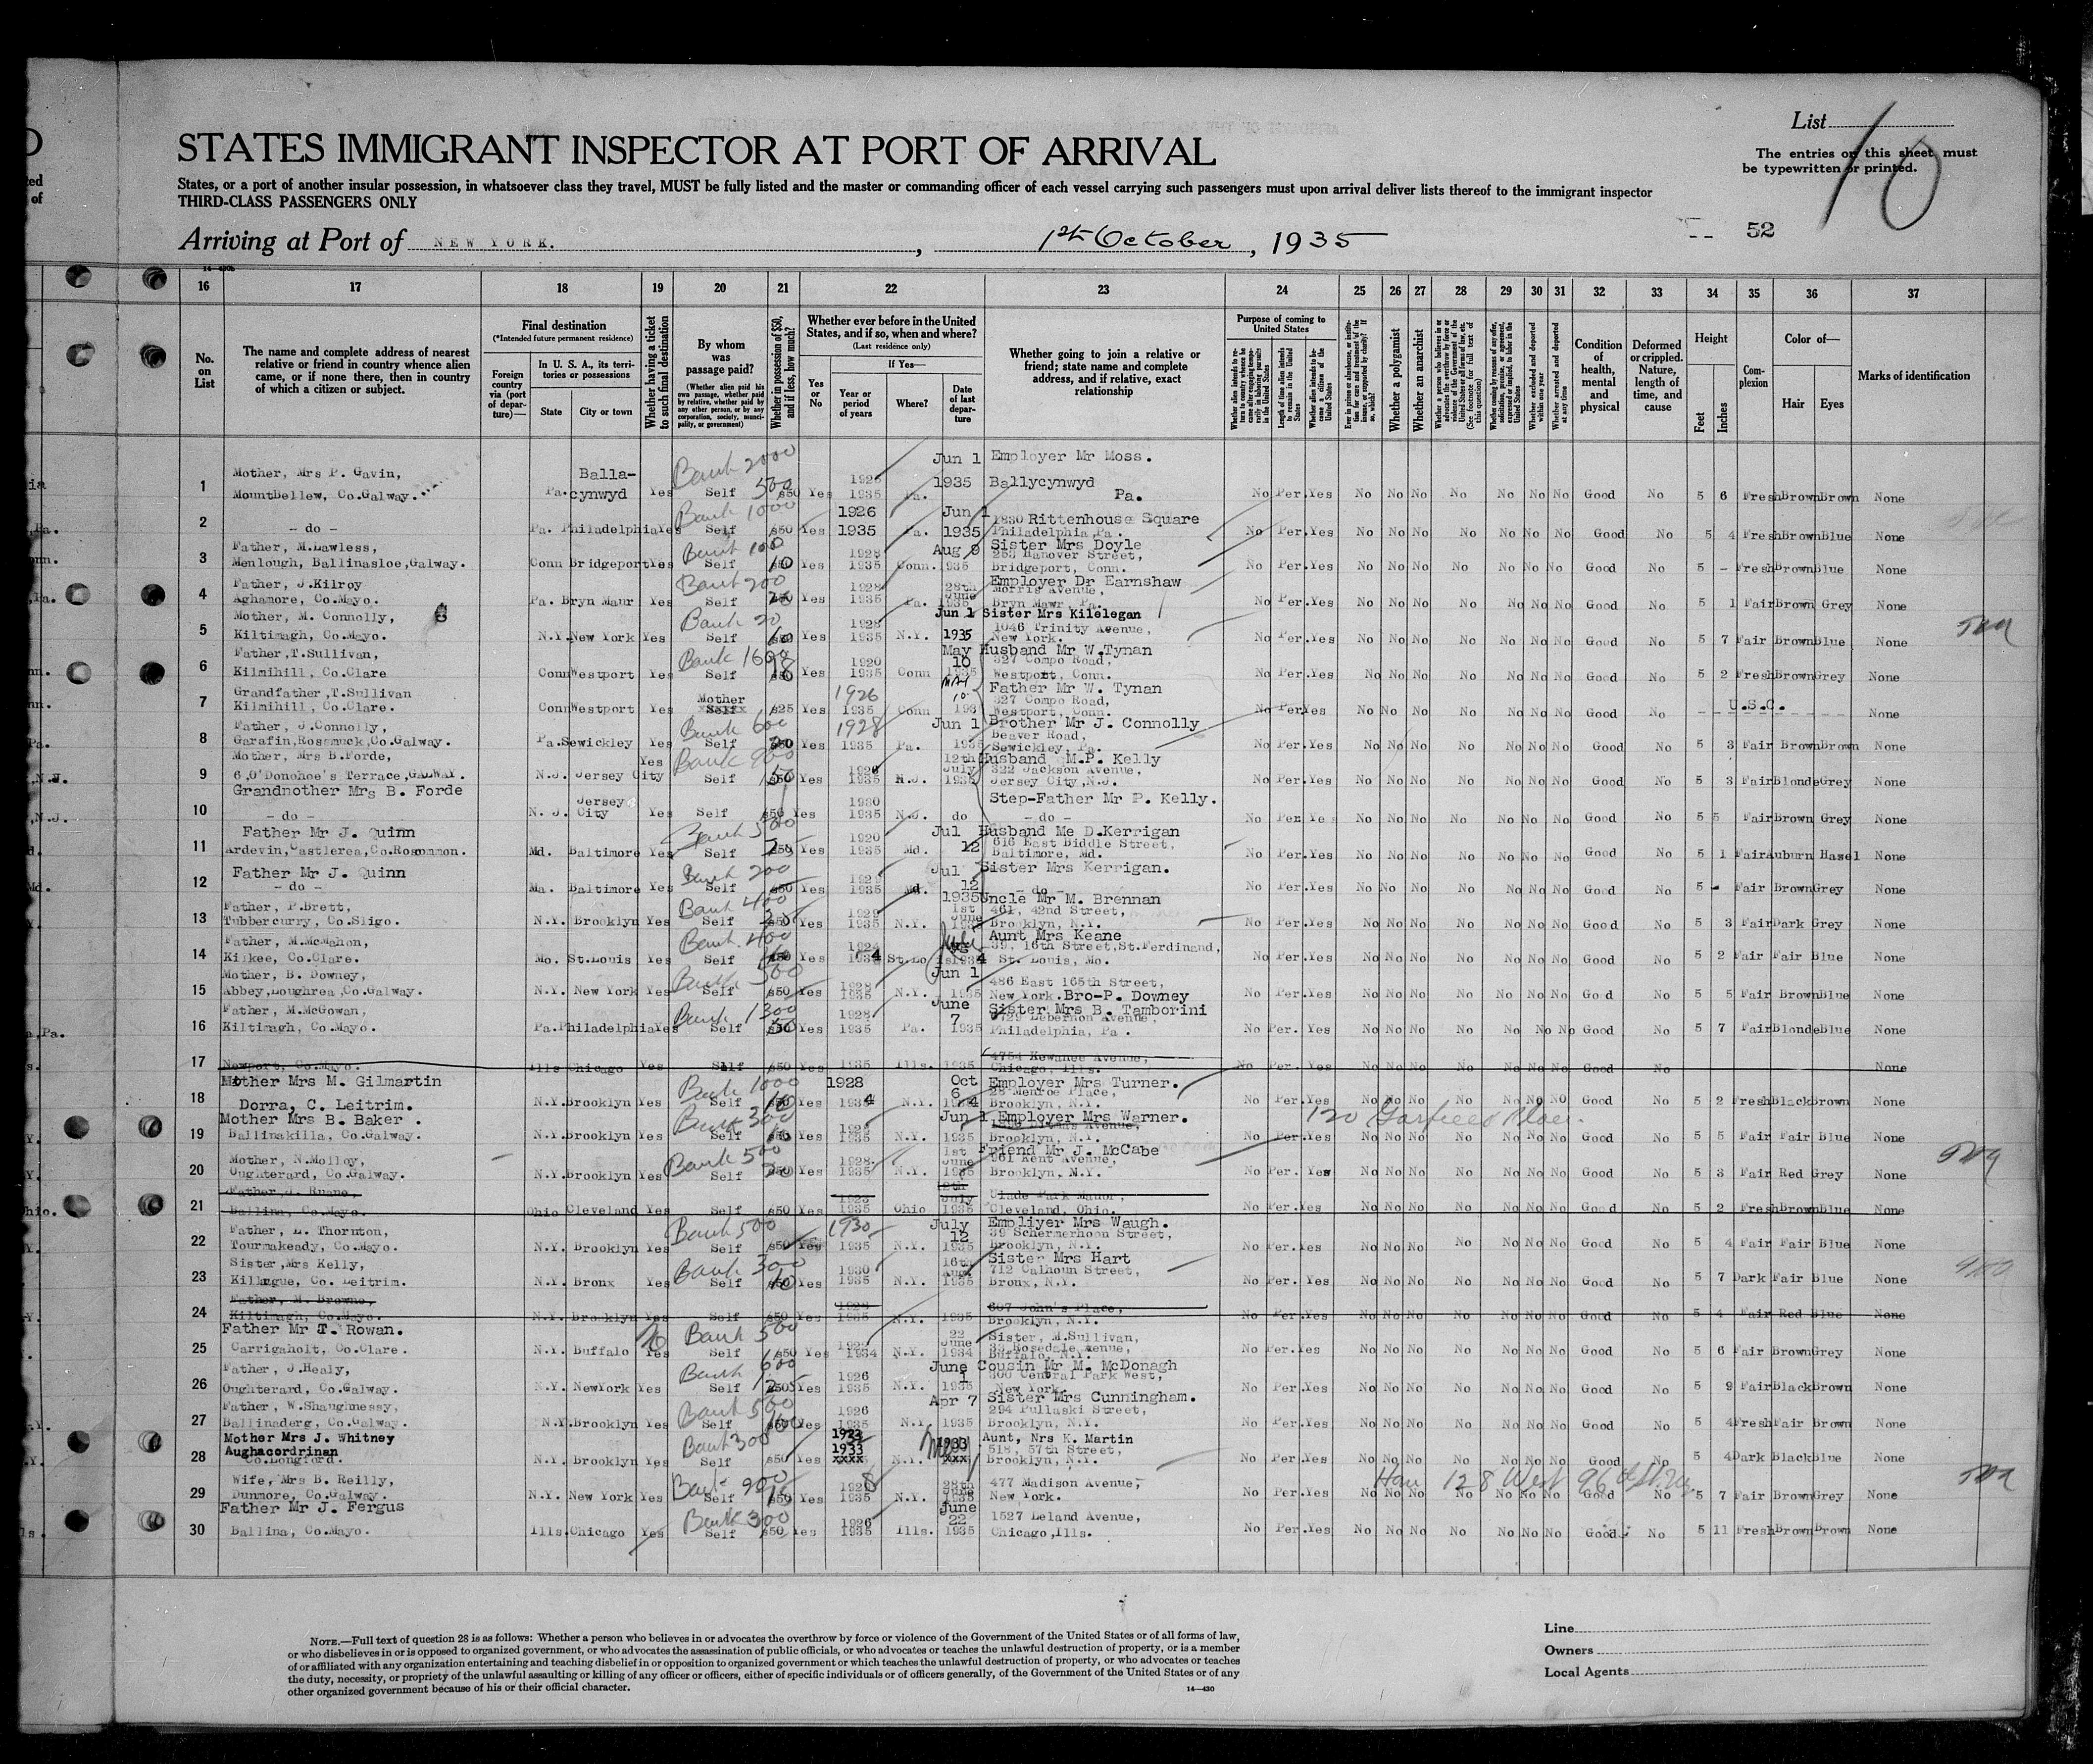 List 10
STATES IMMIGRANT INSPECTOR AT PORT OF ARRIVAL
The entries on this sheet must
be typewritten or printed.
States, or a port of another insular possession, in whatsoever class they travel, MUST be fully listed and the master or commanding officer of each vessel carrying such passengers must upon arrival deliver lists thereof to the immigrant inspector
THIRD-CLASS PASSENGERS ONLY
Arriving at Port of NEW YORK. , 1st October , 1935
52
16 17 18 19 20 21 22 23 24 25 26 27 28 29 30 31 32 33 34 35 36 37
No. on List
The name and complete address of nearest relative or friend in country whence alien came, or if none there, then in country of which a citizen or subject.
Final destination
(*Intended future permanent residence)
Foreign country via (port of departure)—
In U. S. A., its territories or possessions
State
City or town
Whether having a ticket to such final destination
By whom was passage paid?
(Whether alien paid his own passage, whether paid by relative, whether paid by any other person, or by any corporation, society, municipality, or government)
Whether in possession of $50, and if less, how much?
Whether ever before in the United States, and if so, when and where?
(Last residence only)
Yes or No
If Yes—
Year or period of years
Where?
Date of last departure
Whether going to join a relative or friend; state name and complete address, and if relative, exact relationship
Purpose of coming to United States
Length of time alien intends to remain in the United States
Whether alien intends to become a citizen of the United States
Whether a polygamist
Whether an anarchist
Whether excluded and deported within one year
Whether arrested and deported at any time
Condition of health, mental and physical
Deformed or crippled. Nature, length of time, and cause
Height
Feet
Inches
Complexion
Color of—
Hair
Eyes
Marks of identification
1 Mother, Mrs P. Gavin, Mountbellew, Co.Galway. Pa. Balla-cynwyd Yes Bank 2000 Self $50 Yes 1935 Pa. Jun 1 1935 Employer Mr Moss. Ballycynwyd Pa. No Per. Yes No No No No No No No Good No 5 6 Fresh Brown Brown None
2 - do - Pa. Philadelphia Yes Bank 1000 Self $50 Yes 1926 1935 Pa. Jun 1 1935 1830 Rittenhouse Square Philadelphia, Pa. No Per. Yes No No No No No No No Good No 5 4 Fresh Brown Blue None
3 Father, M.Lawless, Menlough, Ballinasloe, Galway. Conn Bridgeport Yes Bank 100 Self Yes 1928 1935 Conn. Aug 9 935 Sister Mrs Doyle 253 Hanover Street, Bridgeport, Conn. No Per. Yes No No No No No No No Good No 5 - Fresh Brown Blue None
4 Father, J.Kilroy Aghamore, Co.Mayo. Pa. Bryn Mawr Yes Bank 200 Self Yes 1928 1935 Pa. 28th June 1935 Employer Dr Earnshaw Morris Avenue, Bryn Mawr, Pa. No Per. Yes No No No No No No No Good No 5 1 Fair Brown Grey None
5 Mother, M. Connolly, Kiltimagh, Co.Mayo. N.Y. New York Yes Bank 20 Self Yes 1935 N.Y. Jun 1 1935 Sister Mrs Kilelegan 1046 Trinity Avenue, New York. No Per. Yes No No No No No No No Good No 5 7 Fair Brown Blue None
6 Father, T.Sullivan, Kilmihill, Co.Clare Conn Westport Yes Bank 1600 Self Yes 1920 1935 Conn May 10 1935 Husband Mr W.Tynan 327 Compo Road, Westport, Conn. No Per. Yes No No No No No No No Good No 5 2 Fresh Brown Grey None
7 Grandfather, T.Sullivan Kilmihill, Co.Clare. Conn Westport Yes Mother $25 Yes 1926 1935 Conn May 10 Father Mr W. Tynan 327 Compo Road, Westport, Conn. No Per Yes No No No No No No No Good No U.S.C. None
8 Father, J.Connolly, Garafin, Rosmuck, Co.Galway. Pa. Sewickley Yes Bank 600 Self Yes 1928 1935 Pa. Jun 1 1935 Brother Mr J. Connolly Beaver Road, Sewickley, Pa. No Per. Yes No No No No No No No Good No 5 3 Fair Brown Brown None
9 Mother, Mrs B.Forde, 6, O'Donohoe's Terrace, GALWAY. N.J. Jersey City Yes Bank 900 Self Yes 1935 N.J. 12th July 1935 Husband M.P. Kelly 322 Jackson Avenue, Jersey City, N.J. No Per. Yes No No No No No No No Good No 5 3 Fair Blonde Grey None
10 Grandmother Mrs B. Forde - do - N. J. Jersey City Yes Self $50 Yes 1930 1935 N.J. do Step-Father Mr P. Kelly. - do - No Per Yes No No No No No No No Good No 5 5 Fair Brown Grey None
11 Father Mr J. Quinn Ardevin, Castlerea, Co.Roscommon. Md. Baltimore Yes Bank 500 Self $50 Yes 1920 1935 Md. Jul 12 Husband Me D.Kerrigan 616 East Biddle Street, Baltimore, Md. No Per. Yes No No No No No No No Good No 5 1 Fair Auburn Hazel None
12 Father Mr J. Quinn - do - Ma. Baltimore Yes Bank 200 Self $50 Yes 1935 Md. Jul 12 1935 Sister Mrs Kerrigan. - do - No Per. Yes No No No No No No No Good No 5 - Fair Brown Grey None
13 Father, P.Brett, Tubbercurry, Co.Sligo. N.Y. Brooklyn Yes Bank 400 Self Yes 1929 1935 N.Y. 1st June Uncle Mr M. Brennan 461, 42nd Street, Brooklyn, N.Y. No Per. Yes No No No No No No No Good No 5 3 Fair Dark Grey None
14 Father, M.McMahon, Kilkee, Co.Clare. Mo. St.Louis Yes Bank 400 Self Yes 1924 1934 St.Lo Aunt Mrs Keane 39, 16th Street, St.Ferdinand, St. Louis, Mo. No Per. Yes No No No No No No No Good No 5 2 Fair Fair Blue None
15 Mother, B. Downey, Abbey, Loughrea, Co.Galway. N.Y. New York Yes Bank 300 Self $50 Yes 1935 N.Y. Jun 1 1935 486 East 165th Street, New York. Bro-P. Downey No Per. Yes No No No No No No No Go d No 5 5 Fair Brown Blue None
16 Father, M.McGowan, Kiltimagh, Co.Mayo. Pa. Philadelphia Yes Bank 1300 Self Yes 1928 1935 Pa. June 7 1935 Sister Mrs B. Tamborini Philadelphia, Pa. No Per. Yes No No No No No No No Good No 5 7 Fair Blonde Blue None
17 Newport, Co.Mayo. Ills Chicago Yes Self $50 Yes 1935 Ills. 1935 4754 Kewanee Avenue, Chicago, Ills. No Per. Yes No No No No No No No Good No None
18 Mother Mrs M. Gilmartin Dorra, C. Leitrim. N.Y. Brooklyn Yes Bank 1000 Self Yes 1928 1934 N.Y. Oct 6 Employer Mrs Turner. 28 Monroe Place, Brooklyn, N.Y. No Per. Yes No No No No No No NO Good No 5 2 Fresh Black Brown None
120 Garfield Place.
19 Mother Mrs B. Baker. Ballinakilla, Co.Galway. N.Y. Brooklyn Yes Bank 300 Self Yes 1935 N.Y. Jun 1 1935 Employer Mrs Warner. Brooklyn, N.Y. No Per. Yes No No No No No No No Good No 5 5 Fair Fair Blue None
20 Mother, N.Molloy, Oughterard, Co.Galway. N.Y. Brooklyn Yes Bank 500 Self Yes 1928 1935 N.Y. 1st June 1935 Friend Mr J. McCabe 961 Kent Avenue, Brooklyn, N.Y. No Per. Yes No No No No No No No Good No 5 3 Fair Red Grey None
21 Father, J. Ruane, Ballina, Co.Mayo. Ohio Cleveland Yes Self $50 Yes 1935 Ohio 12th July 1935 Park Manor, Cleveland, Ohio. No Per. Yes No No No No No No No Good No 5 2 Fresh Brown Blue None
22 Father, L. Thornton, Tourmakeady, Co.Mayo. N.Y. Brooklyn Yes Bank 500 Self $50 Yes 1930 1935 N.Y. July 12 1935 Empliyer Mrs Waugh. 39 Schermerhoon Street, Brooklyn, N.Y. No Per. Yes No No No No No No No Good No 5 4 Fair Fair Blue None
23 Sister, Mrs Kelly, Co. Leitrim. N.Y. Bronx Yes Bank 300 Self Yes 1930 1935 N.Y. 16th Aug. 1935 Sister Mrs Hart 712 Calhoun Street, Bronx, N.Y. No Per. Yes No No No No No No No Good No 5 7 Dark Fair Blue None
24 Father, M. Browne, Kiltimagh, Co.Mayo. N.Y. Brooklyn Yes Self $50 Yes 1935 N.Y. 1935 607 John's Place, Brooklyn, N.Y. No Per. Yes No No No No No No No Good No 5 4 Fair Red Blue None
25 Father Mr T. Rowan. Carrigaholt, Co.Clare. N.Y. Buffalo Yes Bank 500 Self $50 Yes 1934 N.Y. 22 June 1934 Sister, M.Sullivan, Rosedale Avenue, Buffalo, N.Y. No Per. Yes No No No No No No No Good No 5 6 Fair Brown Grey None
26 Father, J.Healy, Oughterard, Co.Galway. N.Y. NewYork Yes Bank 600 Self Yes 1926 1935 N.Y. June 1 1935 Cousin Mr M. McDonagh 300 Central Park West, New York. No Per. Yes No No No No No No No Good No 5 9 Fair Black Brown None
27 Father, W.Shaughnessy, Ballinaderg, Co.Galway. N.Y. Brooklyn Yes Bank 500 Self Yes 1926 1935 N.Y. Apr 7 1935 Sister Mrs Cunningham. 294 Pullaski Street, Brooklyn, N.Y. No Per. Yes No No No No No No No Good No 5 4 Fresh Fair Brown None
28 Mother Mrs J. Whitney Aughacordrinan Co.Longford. N.Y. Brooklyn Yes Bank 300 Self $50 Yes 1933 xxxx N.Y. 1933 xxx Aunt, Nrs K. Martin 518, 57th Street, Brooklyn, N.Y. No Per. Yes No No No No No No No Good No 5 4 Dark Black Blue None
128 West 96th St.
29 Wife, Mrs B. Reilly, Dunmore, Co.Galway. N.Y. New York Yes Bank 900 Self Yes 1928 1935 N.Y. 28th June 1935 477 Madison Avenue, New York. No Per. Yes No No No No No No No Good No 5 7 Fair Brown Grey None
30 Father Mr J. Fergus Ballina, Co.Mayo. Ills. Chicago Yes Bank 300 Self $50 Yes 1926 1935 Ills. June 22 1935 1527 Leland Avenue, Chicago, Ills. No Per. Yes No No No No No No No Good No 5 11 Fresh Brown Brown None
NOTE.—Full text of question 28 is as follows: Whether a person who believes in or advocates the overthrow by force or violence of the Government of the United States or of all forms of law,
or who disbelieves in or is opposed to organized government, or who advocates the assassination of public officials, or who advocates or teaches the unlawful destruction of property, or is a member
of or affiliated with any organization entertaining and teaching disbelief in or opposition to organized government or which teaches the unlawful destruction of property, or who advocates or teaches
the duty, necessity, or propriety of the unlawful assaulting or killing of any officer or officers, either of specific individuals or of officers generally, of the Government of the United States or of any
other organized government because of his or their official character.
14—430
Line
Owners
Local Agents